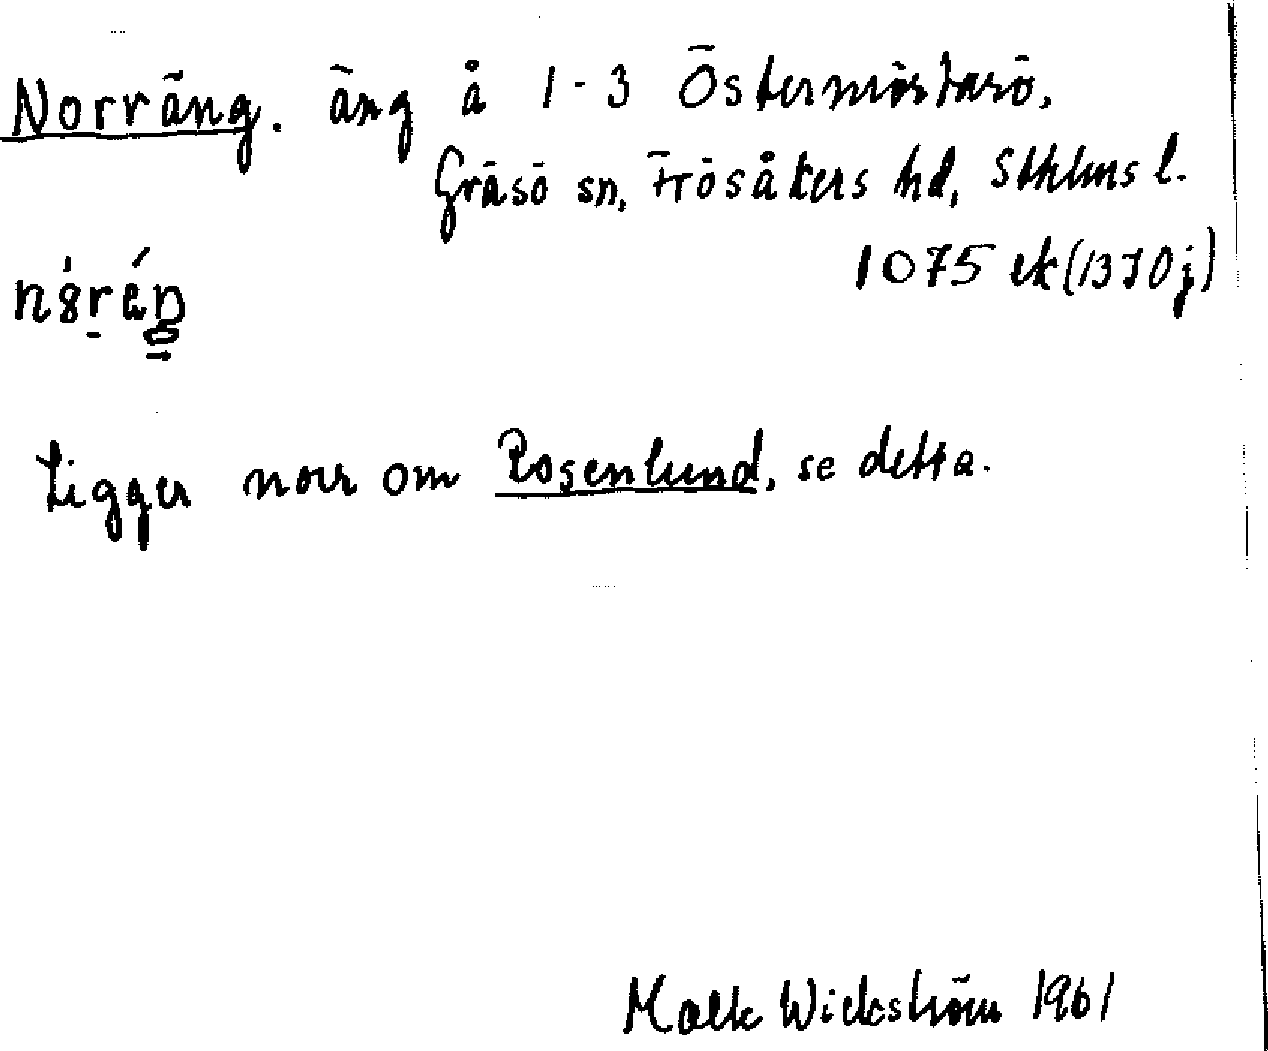 Norräng. äng å 1-3 Östermörtarö,
Gräsö sn, Frösåkers hd, Sthlms l.
1075 ek (13 J 0 j)
Ligger norr om Rosenlund, se detta.
Wickström 1961